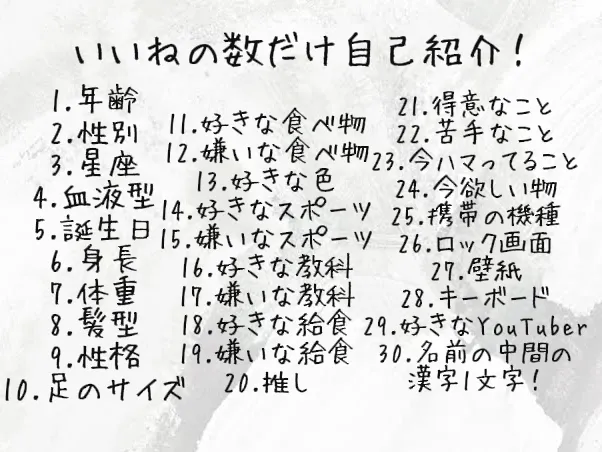 いいねの数だけ自己紹介!
1.年齢
2.性別
3.星座
4.血液型
5.誕生日
6.身長
7.体重
8.髪型
9.性格
10.足のサイズ
11.好きな食べ物
12.嫌いな食べ物
13.好きな色
14.好きなスポーツ
15.嫌いなスポーツ
16.好きな教科
17.嫌いな教科
18.好きな給食
19.嫌いな給食
20.推し
21.得意なこと
22.苦手なこと
23.今ハマってること
24.今欲しい物
25.携帯の機種
26.ロック画面
27.壁紙
28.キーボード
29.好きなYouTuber
30.名前の中間の
漢字1文字!